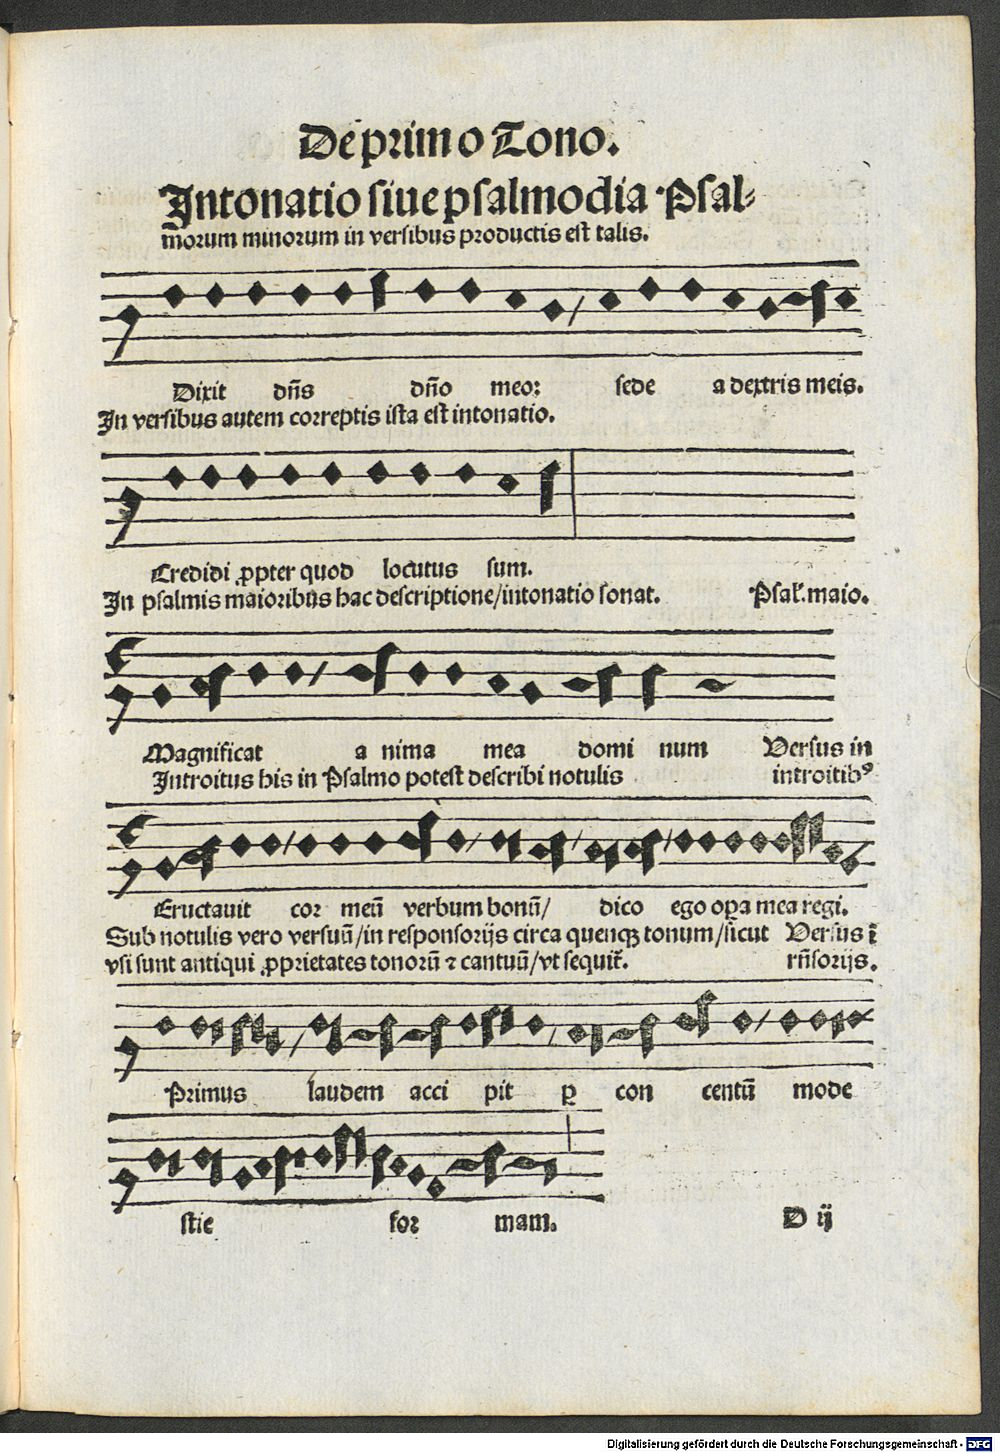 De primo Tono.
Intonatio siue psalmodia Psal-
morum minorum in versibus productis est talis.
Dixit dñs dño meo: sede a dextris meis.
In versibus autem correptis ista est intonatio.
Credidi ꝓpter quod locutus sum.
In psalmis maioribus hac descriptione/intonatio sonat. Psal. maio.
Magnificat a nima mea domi num Versus in
Introitus his in Psalmo potest describi notulis introitibꝰ
Eructauit cor meū verbum bonū/ dico ego oꝑa mea regi.
Sub notulis vero versuū/in responsorijs circa quenqꝫ tonum/sicut Versus ī
vsi sunt antiqui ꝓprietates tonorū ⁊ cantuū/vt sequit̃. rñsorijs.
Primus laudem acci pit ꝑ con centū mode
stie for mam.
D ij
Digitalisierung gefördert durch die Deutsche Forschungsgemeinschaft - DFG